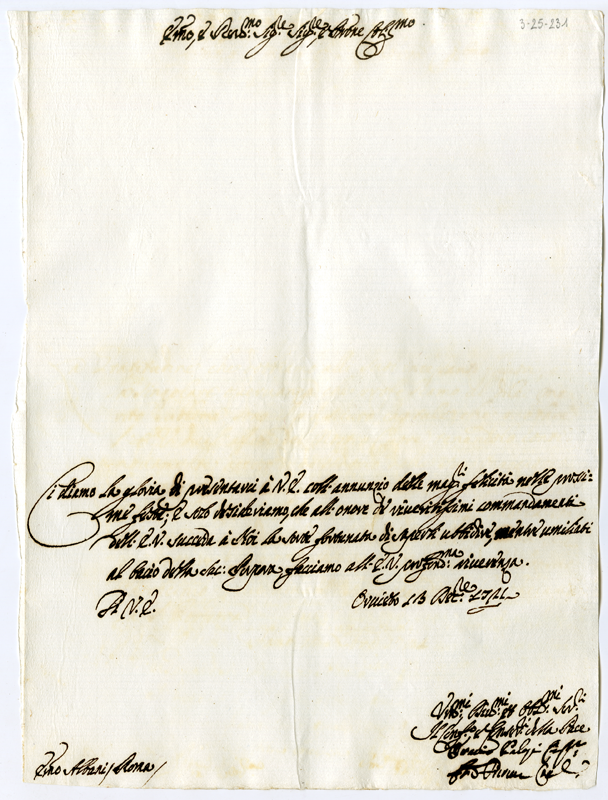 3-25-231
Emo, e Revmo: Sigre Sigre, e Prone Colmo
Ci diamo la gloria di presentarci à V. E. coll'annunzio delle magri felicità nelle prossi=
me feste; E seco desideriamo, che all'onore de' riveritissimi commandamenti
dell'E. V. succeda à Noi la sorte fortunata di saperli ubbidire, mentre umiliati
al bacio della Sac: Porpora facciamo all'E. V. profondma: riverenza.
Di V. E.
Orvieto 13 Xbre
Umi Divmi et Obbmi Servi
della Pace
Emo Albani / Roma /